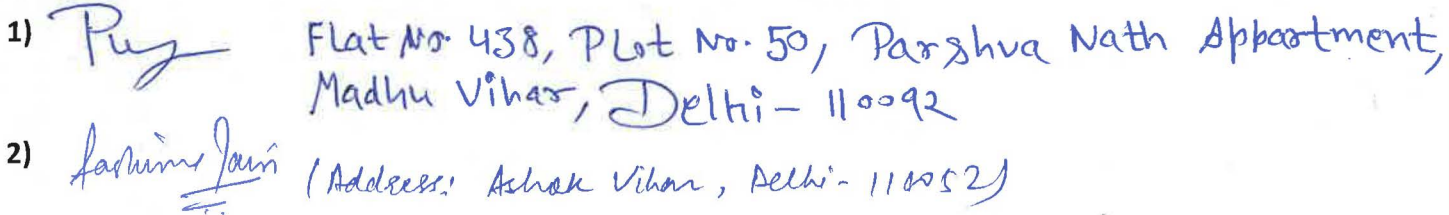 1) Flat No. 438, Plot No. 50, Parshva Nath Appartment,
Madhu Vihar, Delhi - 110092
2) Jain (Address: Ashok Vihar, Delhi - 110052)